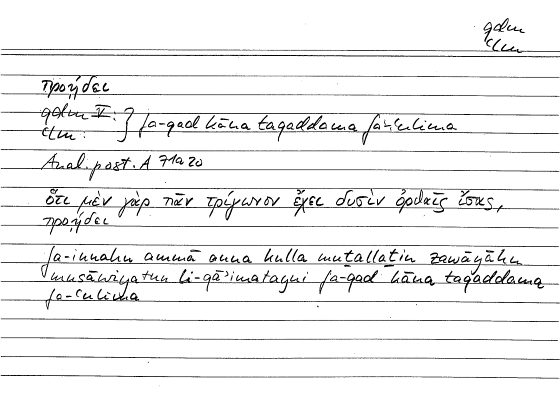 qdm
ʿlm
προῄδει
qdm V:
ʿlm: } fa-qad kāna taqaddama fa-ʿulima
Anal. post. A 71a20
ὅτι μὲν γὰρ πᾶν τρίγωνον ἔχει δυσὶν ὀρθαῖς ἴσας,
προῄδει
fa-innahu ammā anna kulla muṯallaṯin zawāyāhu
musāwiyatun li-qāʾimatayni fa-qad kāna taqaddama
fa-ʿulima